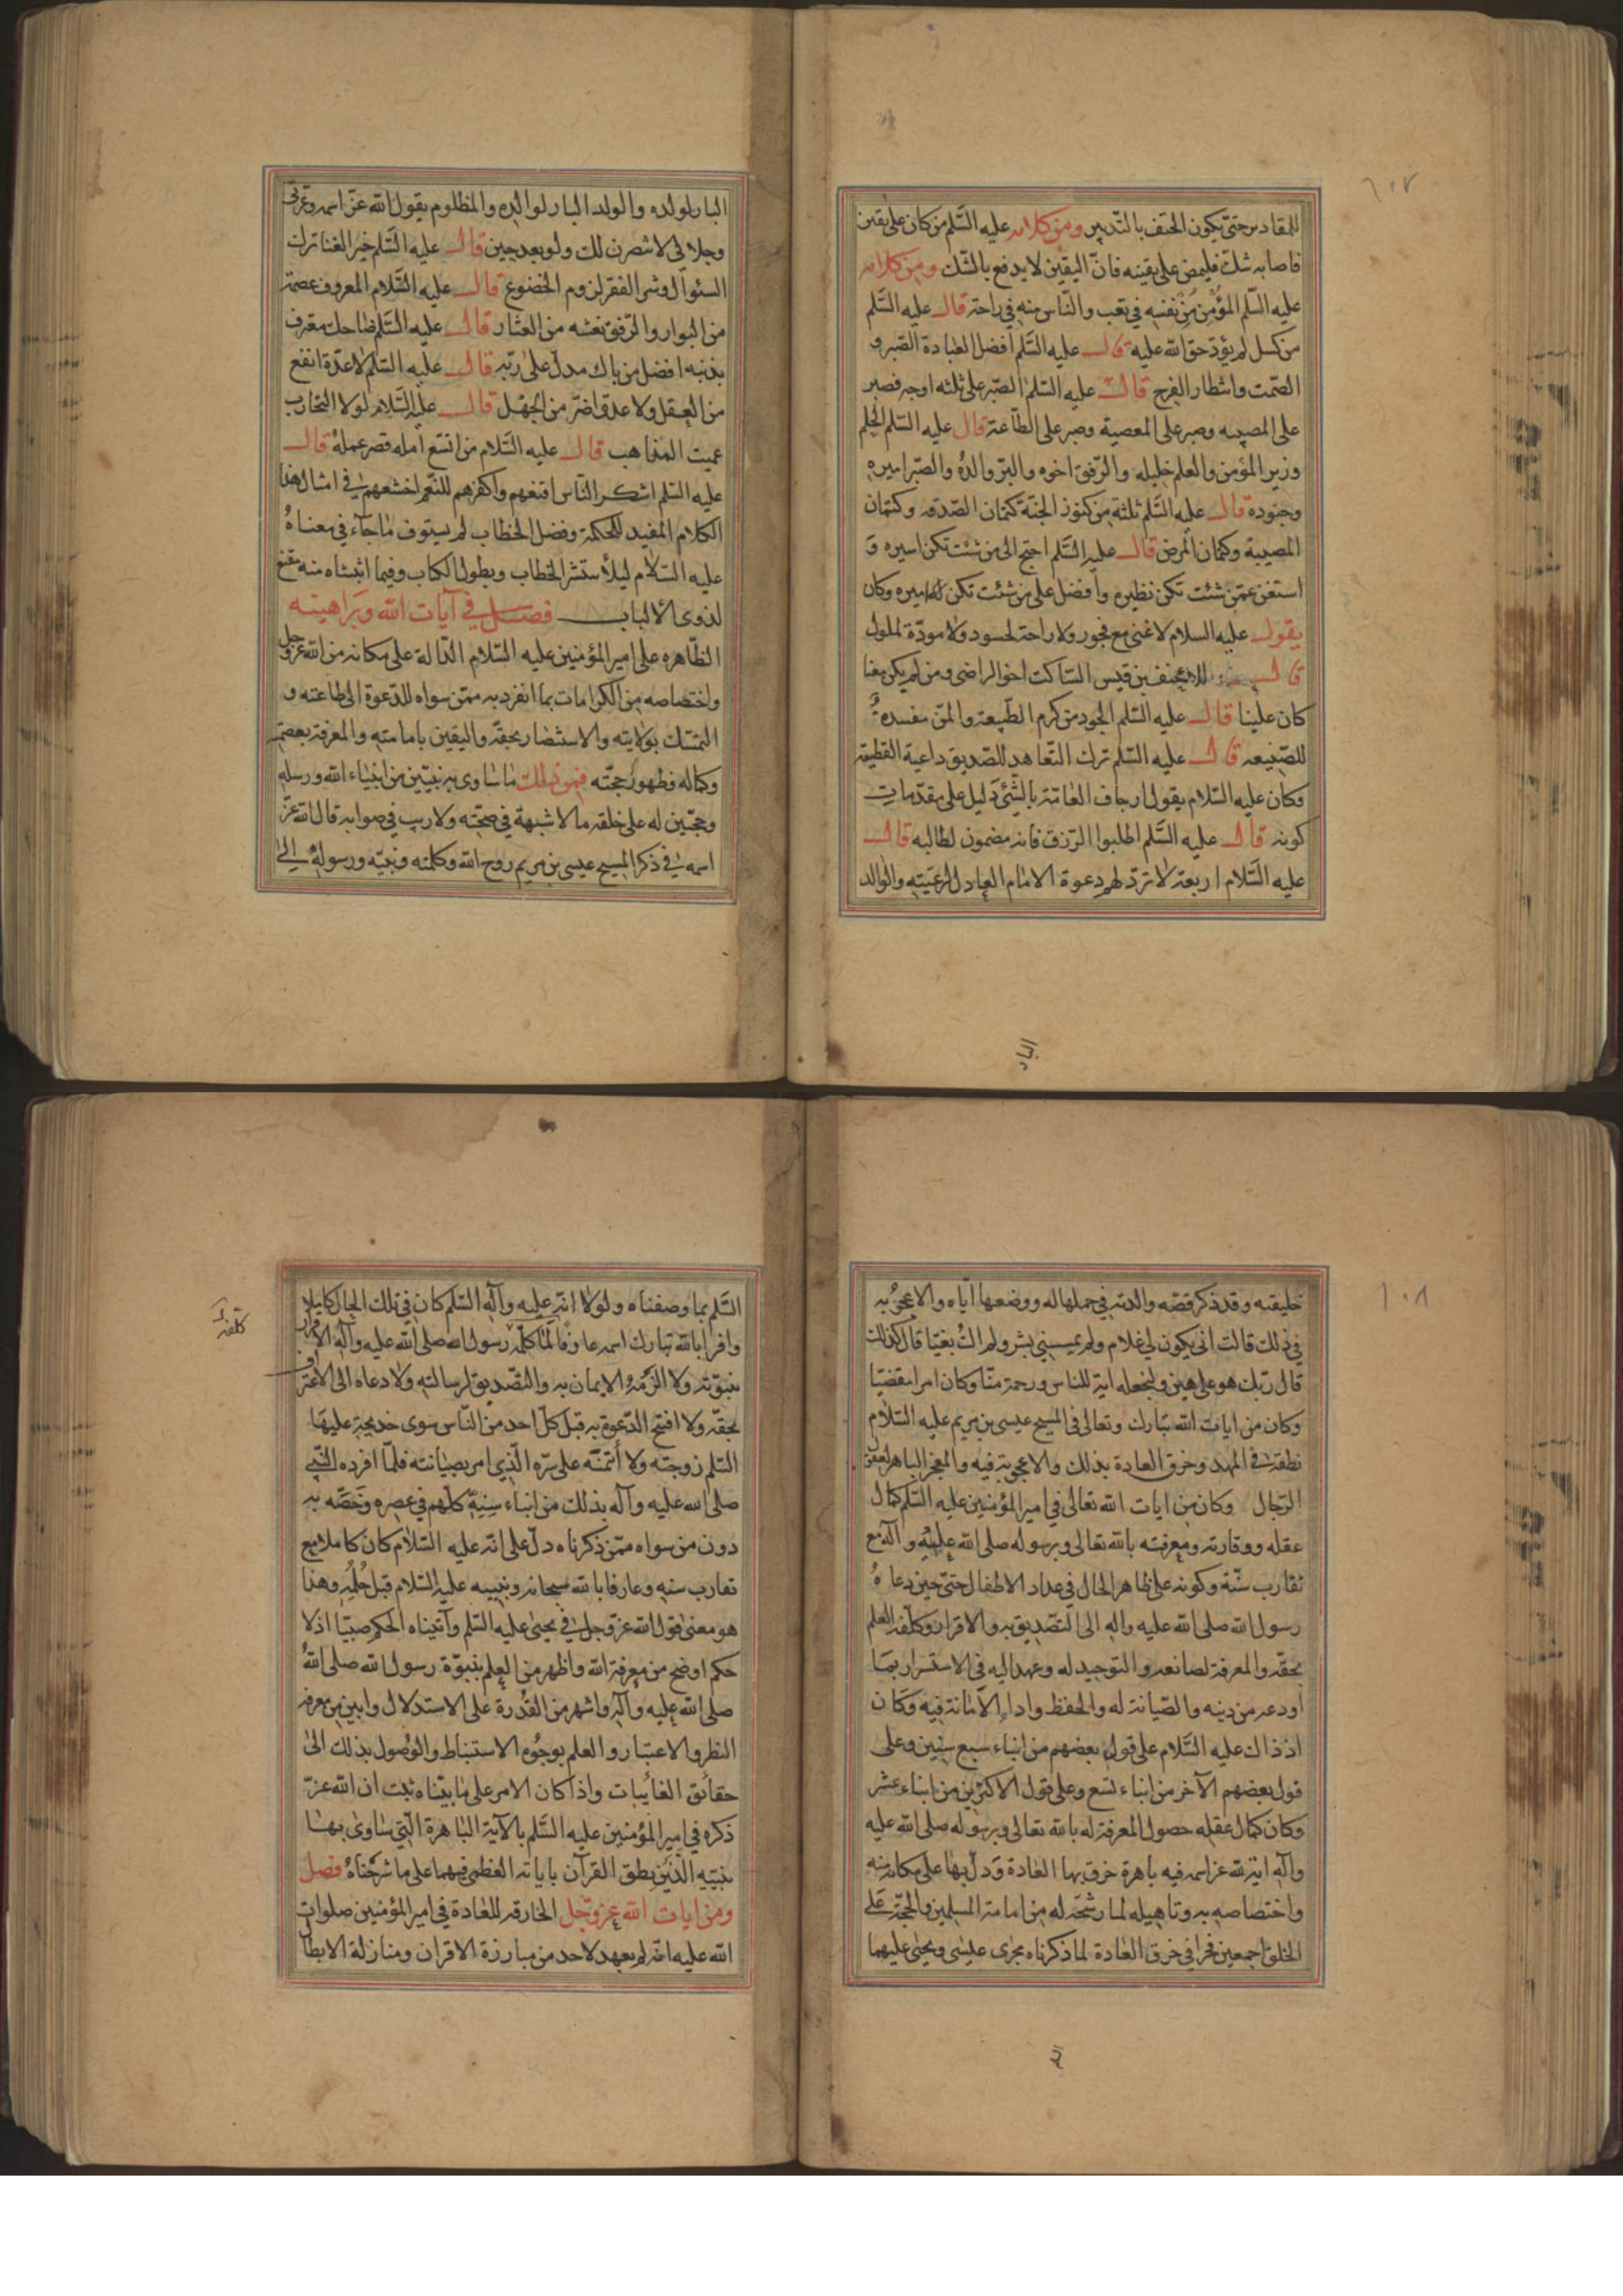 ١٠٧
للمقادير حتى يكون الحتف بالتدبير ومن كلامه عليه السّلم من كان على يقين
فاصابه شك فليمض على يقينه فانّ اليقين لا يدفع بالشّك ومن كلامه
عليه السّلم المؤمن من نفسه في تعب والنّاس منه في راحة قال عليه السّلم
من كسل لم يؤدّ حق الله عليه قال عليه السّلم افضل العبادة الصّبر و
الصّمت وانتظار الفرج قال عليه السّلم الصّبر على ثلثه اوجه فصبر
على المصيبه وصبر على المعصية وصبر على الطّاعة قال عليه السّلم الحلم
وزير المؤمن والعلم خليله والرّفق اخوه والبرّ والده والصّبر اميره
وجنوده قال عليه السّلم ثلثة من كنوز الجنّة كتمان الصّدقه وكتمان
المصيبة وكتمان المرض قال عليه السّلم احتج الى من شئت تكن اسيره و
استغن عمّن شئت تكن نظيره وافضل على من شئت تكن اميره وكان
يقول عليه السلام لا غنى مع فجور ولا راحة لحسود ولا مودّة لملول
قال للاحنف بن قيس السّاكت اخو الراضى ومن لم يكن معنا
كان علينا قال عليه السّلم الجود من كرم الطّبيعة والمنّ مفسدة
للصّنيعه قال عليه السّلم ترك التّعاهد للصّديق داعية القطيعة
وكان عليه السّلام يقول ارجاف العامّة بالشّئ دليل على مقدّمات
كونه قال عليه السّلم اطلبوا الرّزق فانه مضمون لطالبه قال
عليه السّلام اربعة لا تردّ لهم دعوة الامام العادل لرعيّته والوالد
البار
البار لولده والولد البار لوالده والمظلوم يقول الله عزّ اسمه وعزتى
وجلالى لانتصرن لك ولو بعد حين قال عليه السّلم خير الغنا ترك
السئوال وشر الفقر لزوم الخضوع قال عليه السّلام المعروف عصمة
من البوار والرّفق نعشه من العثار قال عليه السّلم ضاحك معترف
بذنبه افضل من باك مدلّ على ربّه قال عليه السّلم لا عدّة انفع
من العقل ولا عدوّ اضرّ من الجهل قال عليه السّلام لولا التجارب
عميت المذاهب قال عليه السّلام من اتسع امله قصر عمله قال
عليه السّلم اشكر النّاس اقنعهم واكفرهم للنّعم اجشعهم فى امثال هذا
الكلام المفيد للحكمة وفضل الخطاب لم يستوف ما جآء في معناهُ
عليه السّلام ليلا ينتشر الخطاب ويطول الكتاب وفيما اثبتناه منه مقنع
لذوى الألباب فصل في آيات الله وبراهينه
الظّاهره على امير المؤمنين عليه السّلام الدّالة على مكانه من الله عزّوجل
واختصاصه من الكرامات بما انفرد به ممّن سواه للدّعوة الى طاعته و
التمسّك بولايته والاستبصار بحقّه واليقين بامامته والمعرفة بعصمته
وكماله وظهور حجّته فمن ذلك ما ساوى به نبيّين من انبياء الله ورسله
وحجّتين له على خلقه ما لا شبهة في صحّته ولا ريب في صوابه قال الله عزّ
اسمه فى ذكر المسيح عيسى بن مريم روح الله وكلمته ونبيّه ورسوله الى
١٠٨
خليقته وقد ذكر قصّه والدته في حملها له ووضعها ايّاه والاعجوبه
في ذلك قالت انى يكون لي غلام ولم يمسسنى بشر ولم اك بغيّا قال كذلك
قال ربّك هو على هين ولنجعله اية للناس ورحمة منّا وكان امرا مقضيّا
وكان من ايات الله تبارك وتعالى في المسيح عيسى بن مريم عليه السّلام
نطقه فى المهد وخرق العادة بذلك والاعجوبة فيه والمعجز الباهر لعقول
الرّجال وكان من ايات الله تعالى في امير المؤمنين عليه السّلم كمال
عقله ووقارته ومعرفته بالله تعالى وبرسوله صلى الله عليه وآله مع
تقارب سنّة وكونه على ظاهر الحال في عداد الاطفال حتّى حين دعاهُ
رسول الله صلى الله عليه واله الى التّصديق به والاقرار وكلّفه العلم
بحقّه والمعرفة لصانعه والتوحيد له وعهد اليه في الاستسرار بما
اودعه من دينه والصّيانة له والحفظ واداء الامانة فيه وكان
اذ ذاك عليه السّلام على قول بعضهم من ابناء سبع سنين وعلى
قول بعضهم الآخر من ابناء تسع وعلى قول الاكثرين من ابناء عشر
وكان كمال عقله حصول المعرفة له بالله تعالى وبرسوله صلى الله عليه
وآله اية لله عزّ اسمه فيه باهرة خرق بها العادة ودلّ بها على مكانه منه
واختصاصه به وتاهيله لما رشّحه له من امامة المسلمين والحجّة على
الخلق اجمعين فجرا في خرق العادة لما ذكرناه مجرى عيسى ويحيى عليهما
السّلم بما وصفناه ولولا انّه عليه وآله السّلم كان في تلك الحال كاملا
وافرا بالله تبارك اسمه عارفا لما كلّفه رسول الله صلى الله عليه وآله الاقرار
بنبوّته ولا الزمه الايمان به والتّصديق لرسالته ولا دعاه الى الاعتراف
بحقّه ولا افتح الدّعوة به قبل كلّ احد من النّاس سوى خديجة عليها
السّلم زوجته ولا أتمنه على سّره الّذي امر بصيانته فلمّا افرده النّبى
صلى الله عليه وآله بذلك من ابناء سِنِّهِ كلّهم في عصره وخصّه به
دون من سواه ممّن ذكرناه دلّ على انّه عليه السّلام كان كاملا مع
تقارب سنه وعارفا بالله سبحانه ونبييه عليه السّلام قبل حُلُمه وهذا
هو معنى قول الله عزّ وجل فى يحيى عليه السّلم وآتيناه الحكم صبيّا اذ لا
حكم اوضح من معرفة الله واظهر من العلم بنبوّة رسول الله صلى اللهُ
صلى الله عليه وآله واشهر من القدرة على الاستدلال وابين من معرفه
النظر والاعتبار والعلم بوجوه الاستنباط والوصول بذلك الى
حقائق الغائبات واذا كان الامر على ما بيّناه ثبت ان الله عزّ
ذكره في امير المؤمنين عليه السّلم بالآية الباهرة الّتى ساوى بها
نبيّيه الّذين نطق القرآن باياته العظمى فيهما على ما شرحناهُ فصل
ومن ايات الله عزوجل الخارقه للعادة في امير المؤمنين صلوات
الله عليه انه لم يعهد لاحد من مبارزة الاقران ومنازلة الابطال